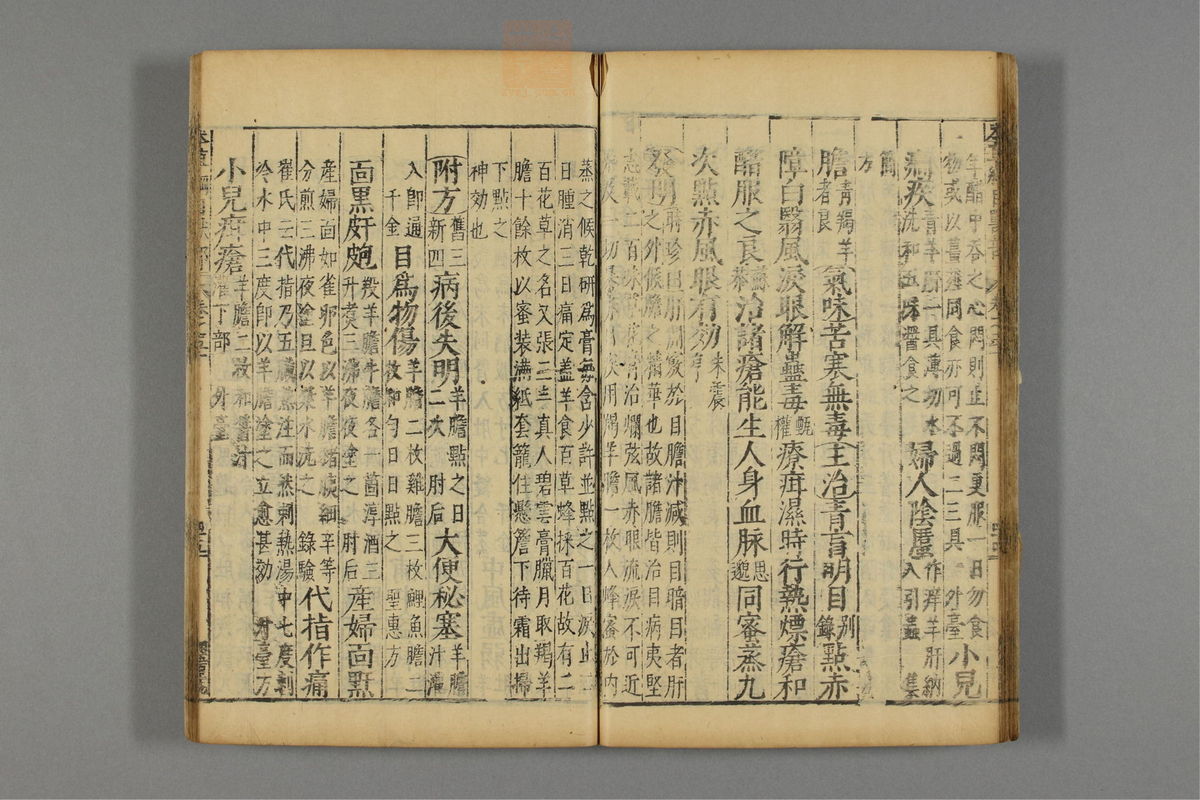 生醋中吞之心悶則止不悶更服一日勿食
物或以薑虀同食亦可不過二三具 外臺 小兒
癎疾 青羊肝一具薄切水洗和五味醬食之 婦人陰䘌 作痒羊肝納入引蟲 集
簡方
膽 青羯羊者良 氣味苦寒無毒 主治青盲明目 别錄 點赤
障白翳風淚眼解蠱毒 甄權 療疳濕時行熱熛瘡和
醋服之良 治諸瘡能生人身血脉 思邈 同蜜蒸九
次點赤風眼有效 朱震亨
發明 之外候膽之精華也故諸膽皆治目病夷堅
志載二百味 治爛弦風赤眼流淚不可近
用羯羊膽一枚入蜂蜜於內
蒸之候乾研爲膏每含少許並點之一日淚止二
日腫消三日痛定蓋羊食百草蜂採百花故有二
百花草之名又張三丰真人碧雲膏臘月取羯羊
膽十餘枚以蜜装滿紙套籠住懸簷下待霜出掃
下點之
神效也
附方 舊三新四 病後失明 羊膽點之日二次 肘后 大便秘塞 羊膽汁灌
入即通 千金 目爲物傷 羊膽二枚雞膽三枚鯉魚膽二枚和勻日日點之 聖惠方
面黑皯皰 羖羊膽牛膽各一箇淳酒三升煑三沸夜夜塗之 肘后 產婦面䵟
産婦面如雀卵色以羊膽猪胰細辛等
分煎三沸夜塗旦以漿水洗之 錄驗 代指作痛
崔氏云代指乃五臟熱注而然刺熱湯中七度刺
冷水中三度即以羊膽塗之立愈甚効 外臺方
小兒疳瘡 羊膽二枚和醬汁灌下部 外臺